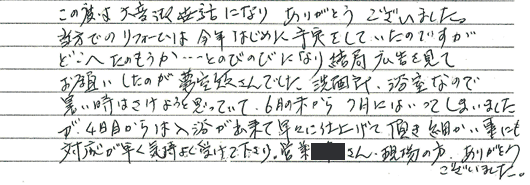 この度は大変お世話になり ありがとうございました。
当方でのリフォームは今年はじめに予定をしていたのですが
どこへたのもうか…とのびのびになり結局広告を見て
お願いしたのが夢空間さんでした。洗面所、浴室なので
暑い時はさけようと思っていて、6月の末から7月にはいってしまいました
が、4日目からは入浴が出来て早々に仕上げて頂き細かい事にも
対応が早く気持よく受けて下さり。営業 さん、現場の方、ありがとう
ございました。